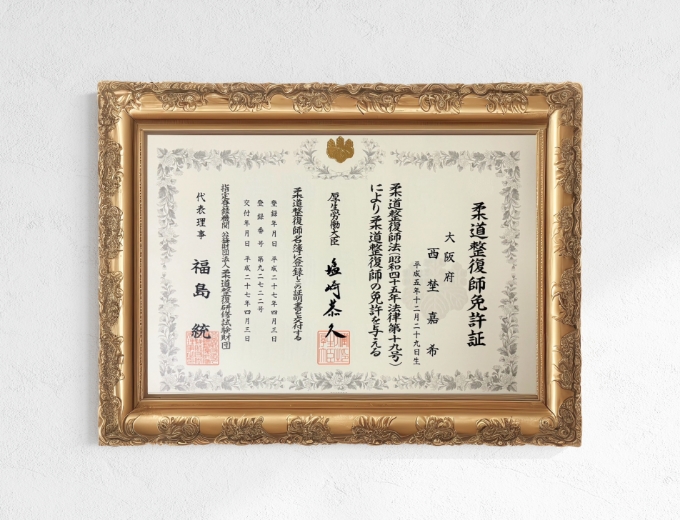 柔道整復師免許証
大阪府
西埜嘉希
平成五年十二月二十九日生
柔道整復師法(昭和四十五年法律第十九号)
により柔道整復師の免許を与える
厚生労働大臣 塩崎恭久
柔道整復師名簿に登録しこの証明書を交付する
登録年月日 平成二十七年四月三日
登録番号 第九二七二二号
交付年月日 平成二十七年四月三日
指定登録機関 公益財団法人柔道整復研修試験財団
代表理事 福島統